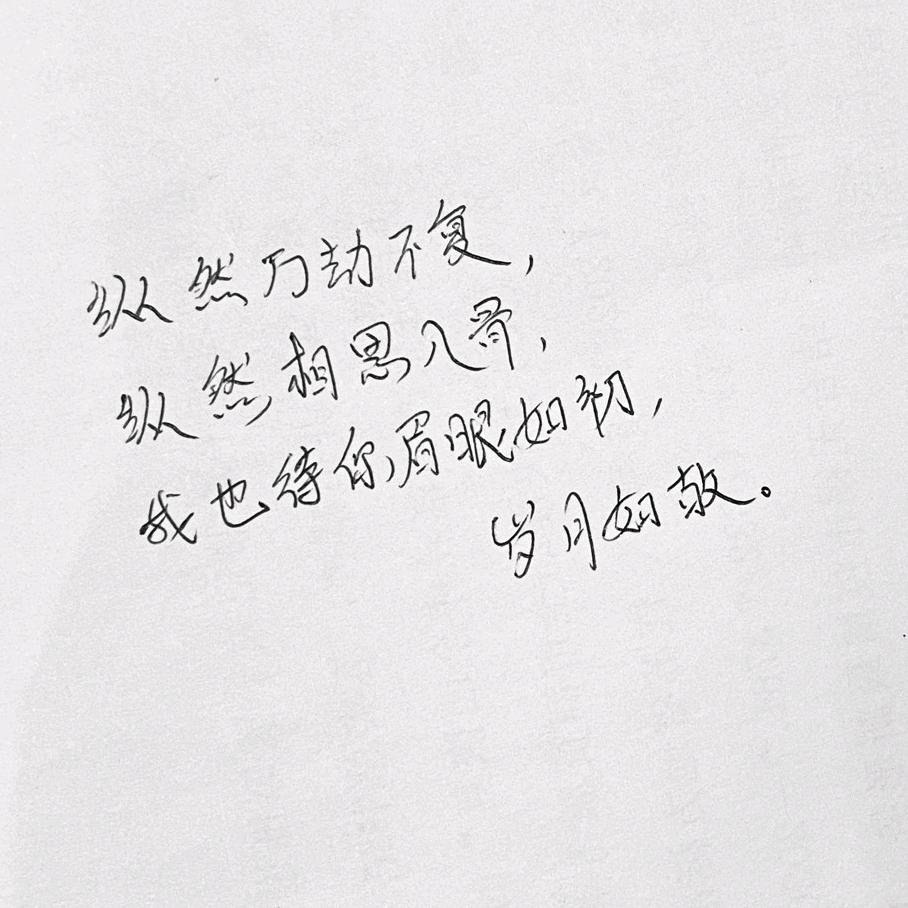 纵然万劫不复，
纵然相思入骨，
我也待你眉眼如初，
岁月如故。